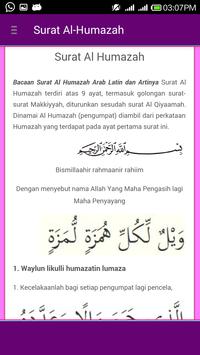 03:07PM
Surat Al-Humazah
Surat Al Humazah
Bacaan Surat Al Humazah Arab Latin dan Artinya Surat Al
Humazah terdiri atas 9 ayat, termasuk golongan surat-
surat Makkiyyah, diturunkan sesudah surat Al Qiyaamah.
Dinamai Al Humazah (pengumpat) diambil dari perkataan
Humazah yang terdapat pada ayat pertama surat ini.
بِسْمِ اللَّهِ الرَّحْمَنِ الرَّحِيمِ
Bismillaahir rahmaanir rahiim
Dengan menyebut nama Allah Yang Maha Pengasih lagi
Maha Penyayang
وَيْلٌ لِّكُلِّ هُمَزَةٍ لُّمَزَةٍ
1. Waylun likulli humazatin lumaza
1. Kecelakaanlah bagi setiap pengumpat lagi pencela,